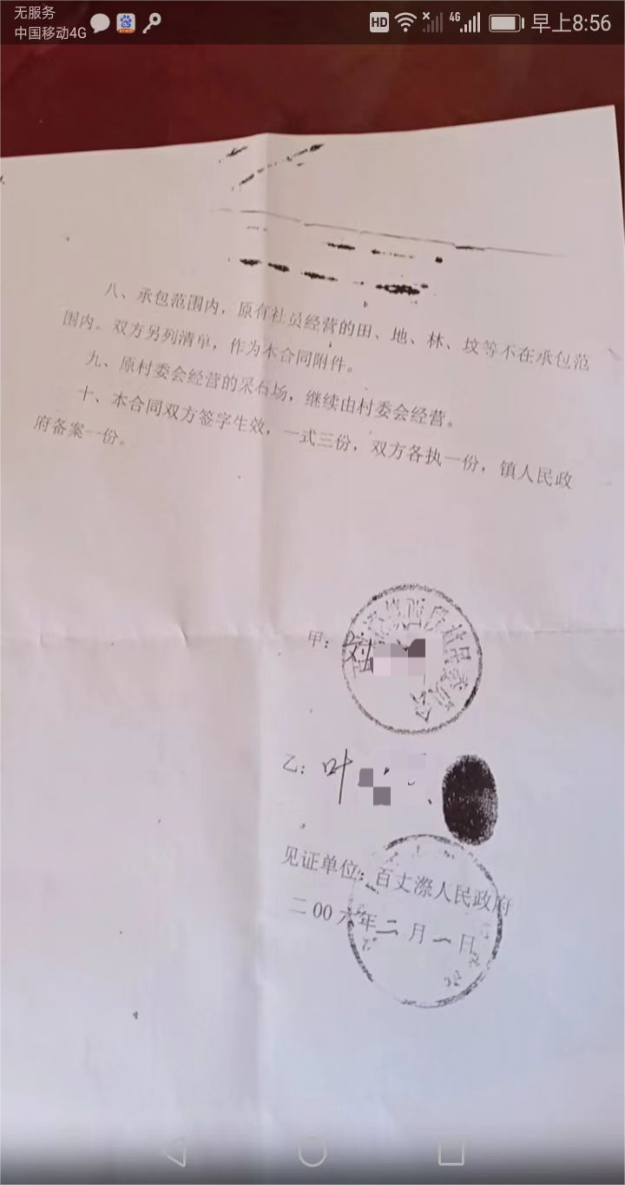 无服务
中国移动4G
HD 4G 早上8:56
八、承包范围内，原有社员经营的田、地、林、坟等不在承包范
围内。双方另列清单，作为本合同附件。
九、原村委会经营的采石场，继续由村委会经营。
十、本合同双方签字生效，一式三份，双方各执一份，镇人民政
府备案一份。
甲：
村民委员会
乙：叶
见证单位：百丈漈人民政府
二00六年二月一日